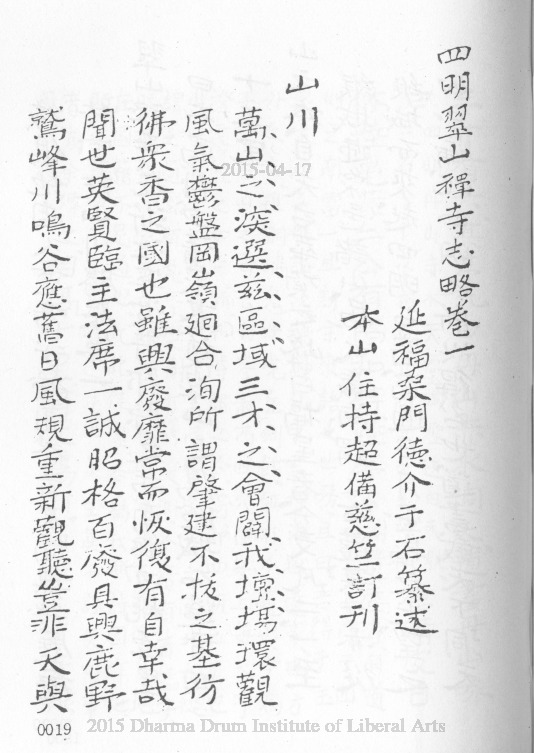 四明翠山禪寺志略卷一
延福桑門德介于石纂述
本山住持超備慈竺訂刊
山川
萬山之深選茲區域三才之會闢我壇場環觀
風氣鬱盤岡嶺廻合洵所謂肇建不拔之基彷
彿衆香之國也雖興廢靡常而恢復有自幸哉
聞世英賢臨主法席一誠昭格百廢具興鹿野
鷲峰川鳴谷應舊日風規重新觀聽豈非天與
2015-04-17
0019 2015 Dharma Drum Institute of Liberal Arts